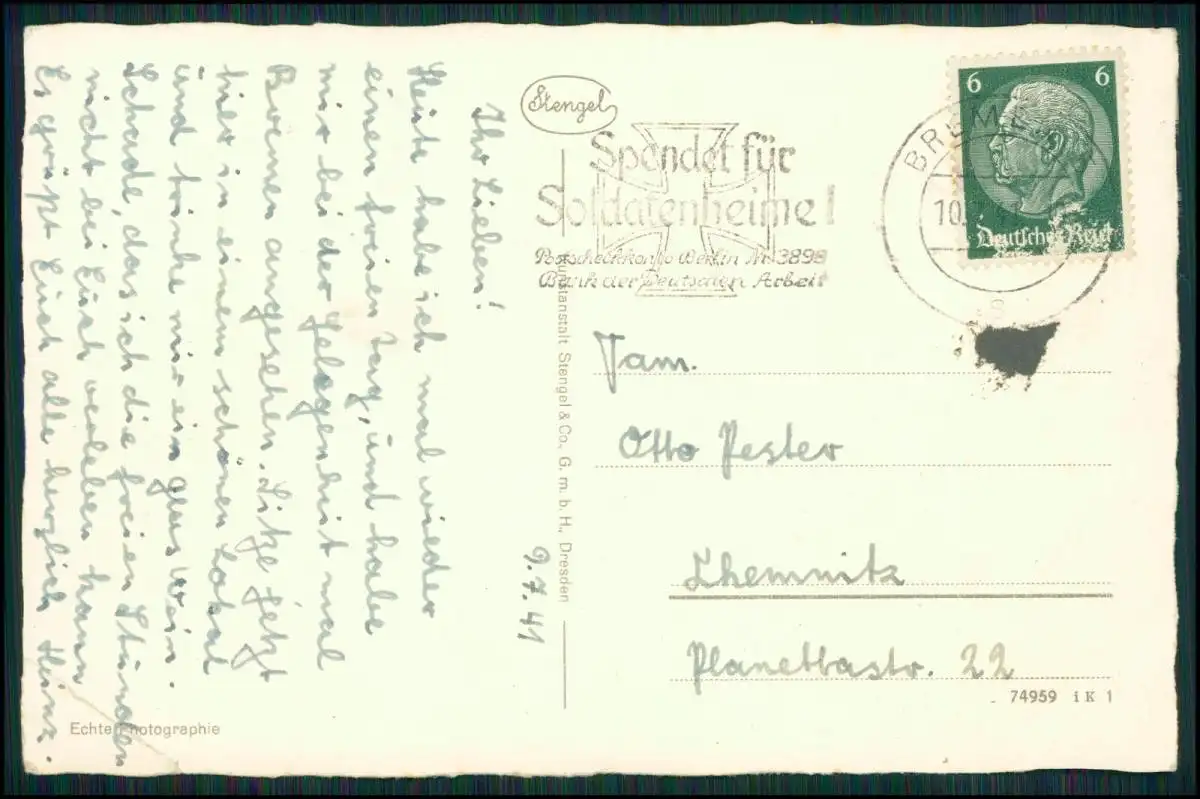 Ihr Lieben!
Heute habe ich mal wieder
einen freien Tag, und habe
mir bei der Gelegenheit mal
Bremen angesehen. Sitze jetzt
hier in einem schönen Lokal
und trinke mir ein Glas Wein.
Schade, das ich die freien Stunden
nicht bei Euch verleben kann
Es grüßt Euch alle herzlich Heinz.
9.7.41
Echte Photographie
Stengel
Kunstanstalt Stengel & Co., G. m. b. H., Dresden
Spendet für
Soldatenheime!
Postscheckkonto Berlin Nr. 3898
Bank der Deutschen Arbeit
BREMEN
10.7.41
6 6
Deutsches Reich
Fam.
Otto Pester
Chemnitz
Planettastr. 22
74959 i K 1